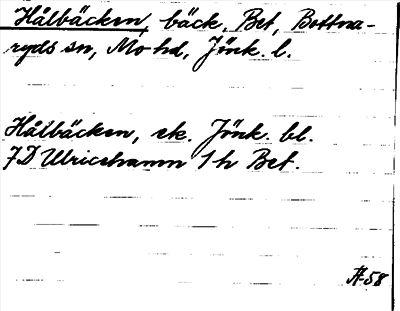 Hålbäcken, bäck, Bet, Bottna-
ryds sn, Mo hd, Jönk. l.
Hålbäcken, ek. Jönk. bl.
7D Ulricehamn 1 h Bet.
Å-58